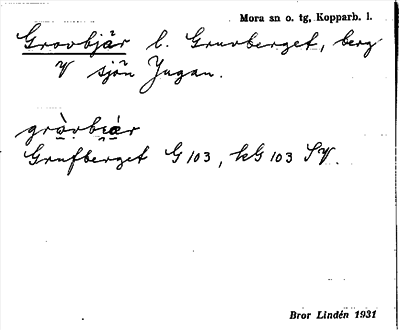 Mora sn o. tg, Kopparb. l.
Grovbjär l. Gruvberget, berg
V sjön Jugan.
grò̱vbi̯är
Grufberget G 103, kG 103 SV.
Bror Lindén 1931